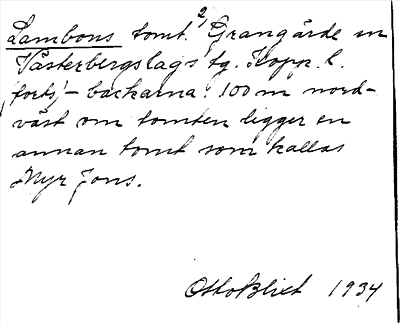 Lambons tomt. 2, Grangärde sn
Västerbergslags tg. Kopp. l.
(forts.) - backarna. 100 m nord-
väst om tomten ligger en
annan tomt som kallas
Myr Jons.
Otto Blixt 1934